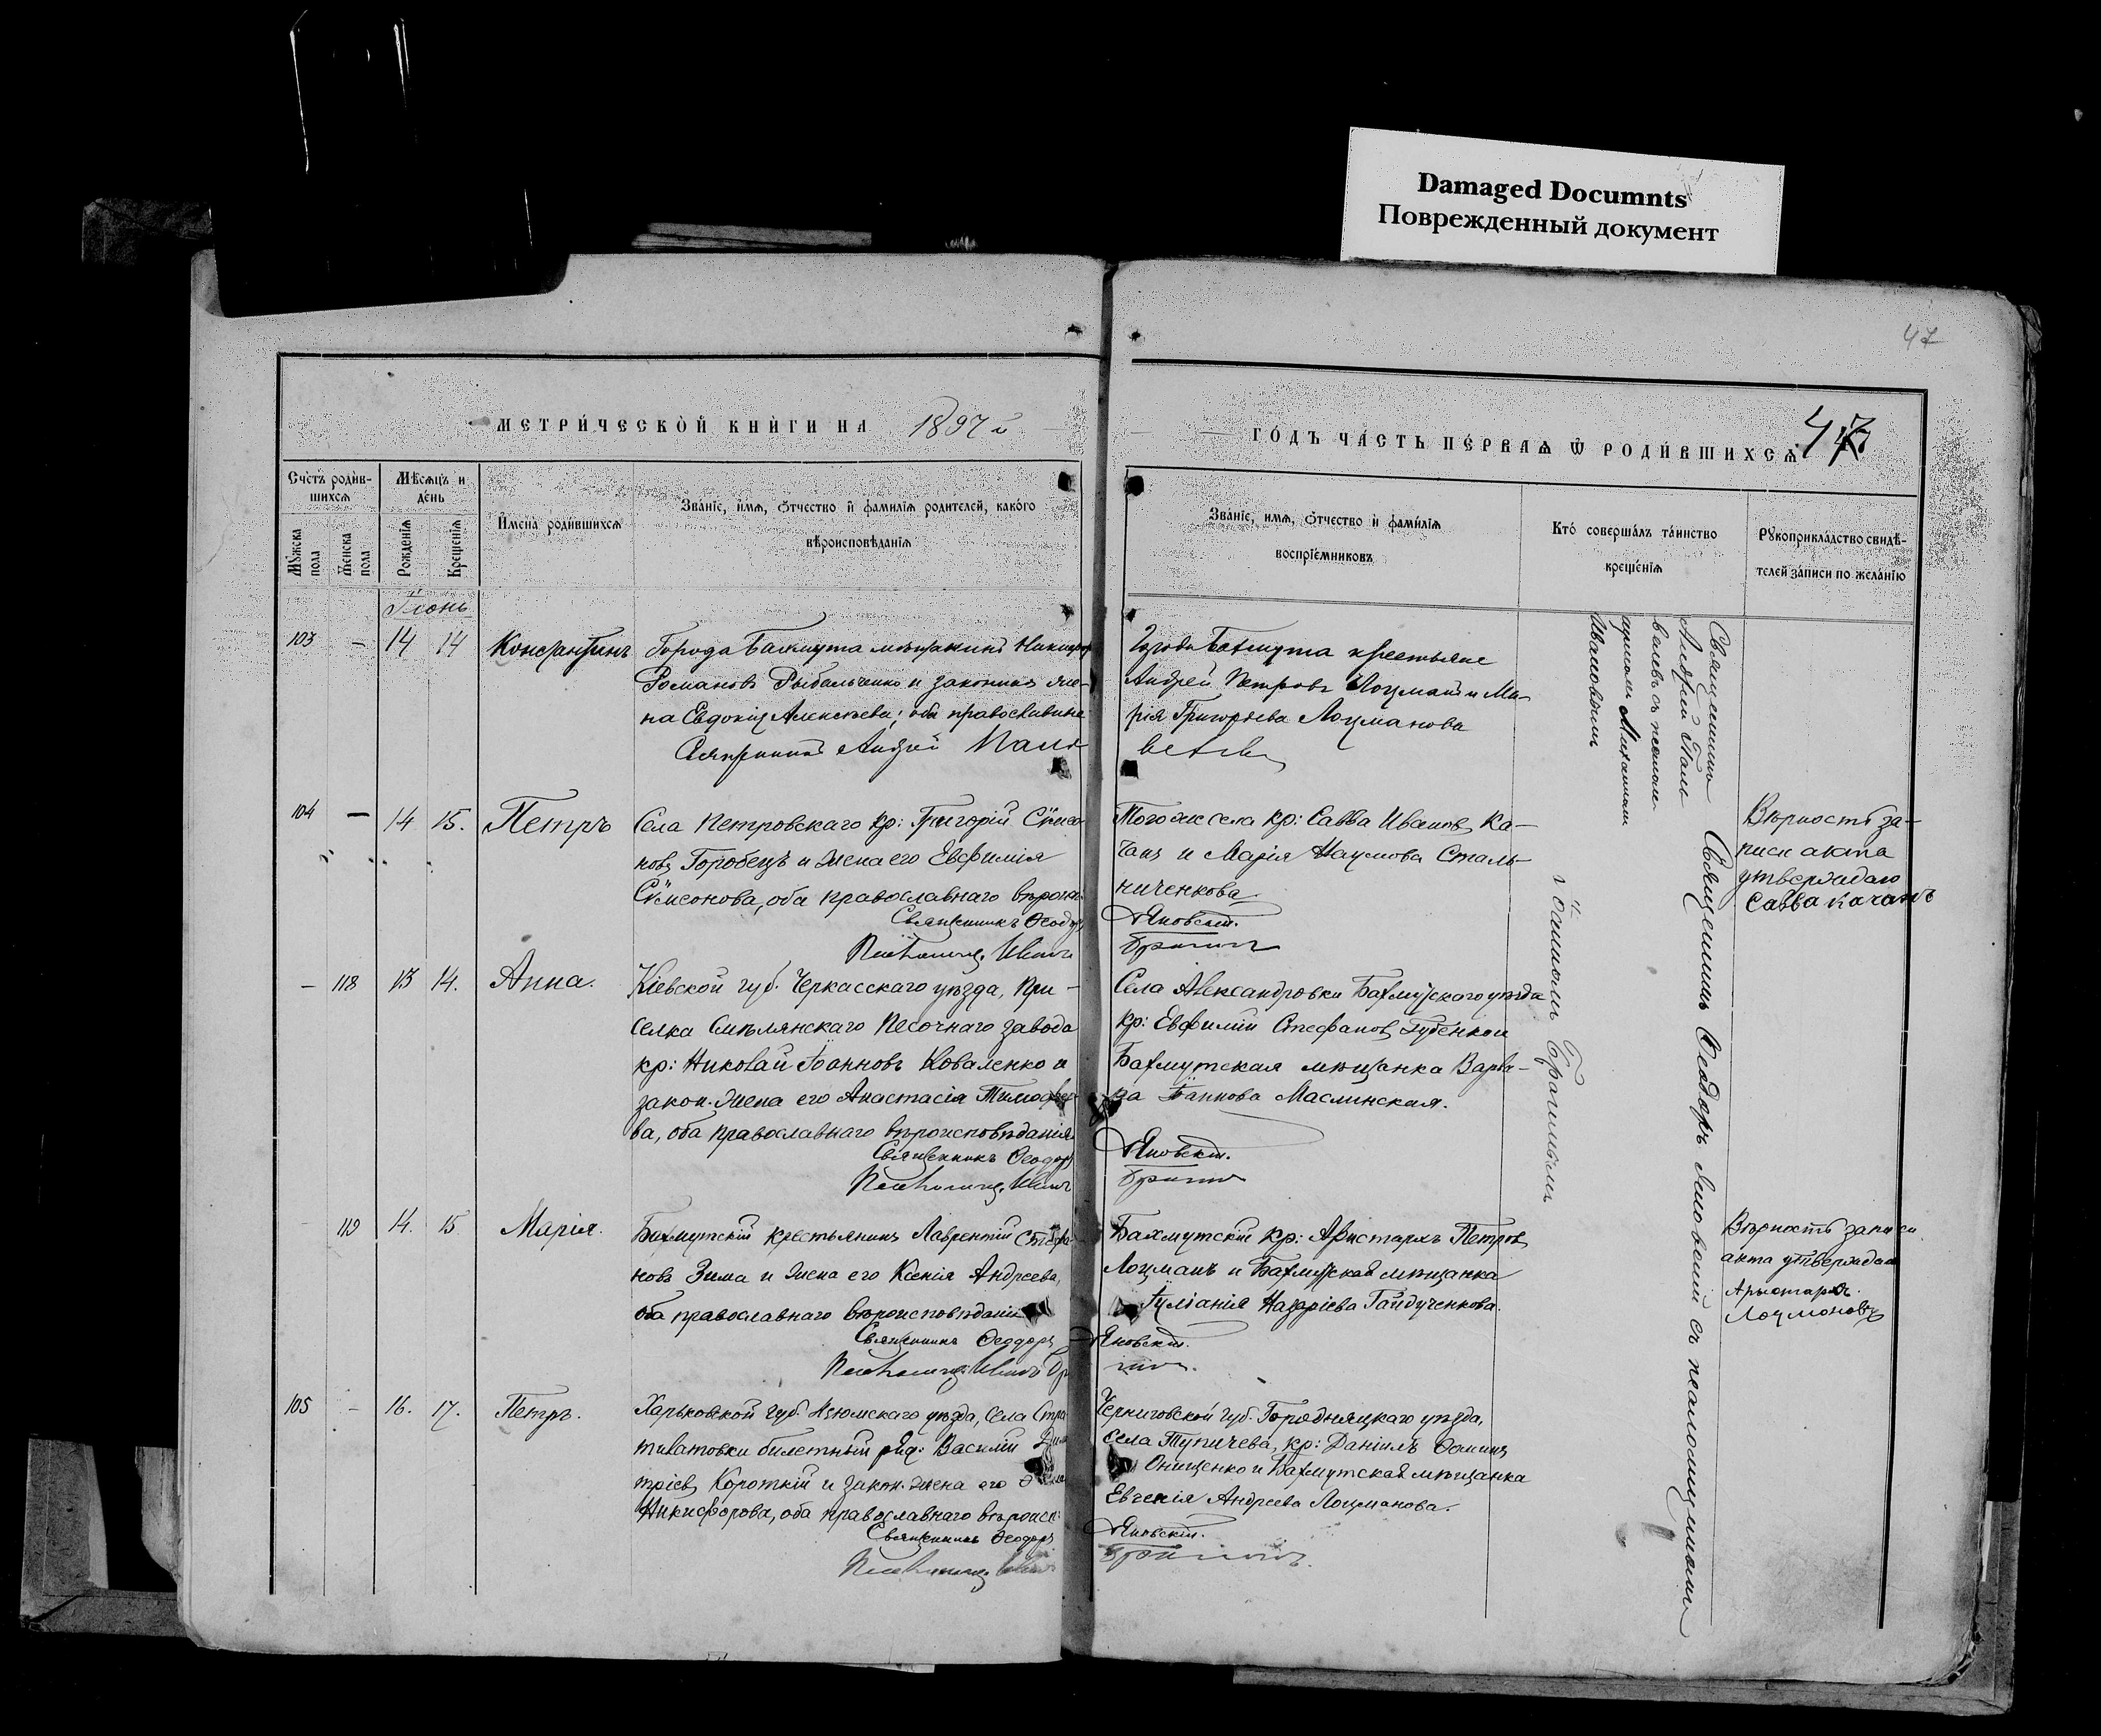 Damaged Documnts
Поврежденный документ
47
МЕТРИ́ЧЕСКОЙ КНИ́ГИ НА 1897 й
ГО́ДЪ ЧА́СТЬ ПЕ́РВАѦ Ѿ РОДИ́ВШИХСѦ
47
Сче́тъ роди́в-
шихсѧ
Мꙋ́жска пола
Же́нска пола
Мѣ́сѧцъ и
де́нь
Рожденїѧ
Крещенїѧ
И҆мена̀ роди́вшихсѧ
Зва́нїе, и҆́мѧ, ѻ҆́тчество и҆ фами́лїѧ родителей, како́го
вѣроисповѣ́данїѧ
Зва́нїе, и҆́мѧ, ѻ҆́тчество и҆ фами́лїѧ
воспрїе́мниковъ
Кто́ соверша́лъ та́инство
креще́нїѧ
Рꙋкоприкла́дство свидѣ́-
телей за́писи по жела́нїю
Іюнь
103 — 14 14 Константинъ
Города Бахмута мѣщанинъ Никифоръ
Романовъ Рыбальченко и законная же-
на Евдокія Алексѣева; оба православные
Священникъ Андрей
Города Бахмута крестьяне
Андрей Петровъ Лоцманъ и Ма-
рія Григорьева Лоцманова
Священникъ
Андрей
съ псалом-
щикомъ Михаиломъ
Ивановымъ
104 — 14 15. Петръ
Села Петровскаго кр: Григорій
новъ Горобецъ и жена его Евфимія
Сѵмеонова, оба православнаго
Священникъ Ѳеодоръ
Псаломщ.
Тогоже села кр: Савва Ивановъ Ка-
чанъ и Марія Наумова Сталь-
ниченкова
Яновскій.
Вѣрность за-
писи акта
утверждаю
Савва Качанъ
— 118 13 14. Анна.
Кіевской губ. Черкасскаго уѣзда, При-
селка Смѣлянскаго Песочнаго завода
кр: Николай Іоанновъ Коваленко и
закон. жена его Анастасія Тимофее-
ва, оба православнаго вѣроисповѣданія
Священникъ Ѳеодоръ
Псаломщ.
Села Александровки Бахмутскаго уѣзда
кр: Евфимій Стефановъ Губенко и
Бахмутская мѣщанка Варва-
ра Іоаннова Маслинская.
Яновскій.
Священникъ Ѳеодоръ Яновскій съ псаломщикомъ
Іоанномъ
119 14. 15 Марія.
Бахмутскій крестьянинъ Лаврентій Стефа-
новъ Зима и жена его Ксенія Андреева,
оба православнаго вѣроисповѣданія
Священникъ Ѳеодоръ
Псаломщ.
Бахмутскій кр: Аристархъ Петровъ
Лоцманъ и Бахмутская мѣщанка
Іуліанія Назаріева Гайдученкова.
Яновскій.
Вѣрность записи
акта утверждаю
Аристархъ
Лоцмановъ
105 — 16. 17. Петръ.
Харьковской губ. Изюмскаго уѣзда, Села Стра-
тилатовки билетный ряд: Василій Дими-
тріевъ Короткій и закон. жена его
Никифорова, оба православнаго вѣроисп:
Священникъ Ѳеодоръ
Псаломщ.
Черниговской губ. Городницкаго уѣзда,
села Тупичева, кр: Даніилъ Ѳоминъ
Онищенко и Бахмутская мѣщанка
Евгенія Андреева Лоцманова.
Яновскій.